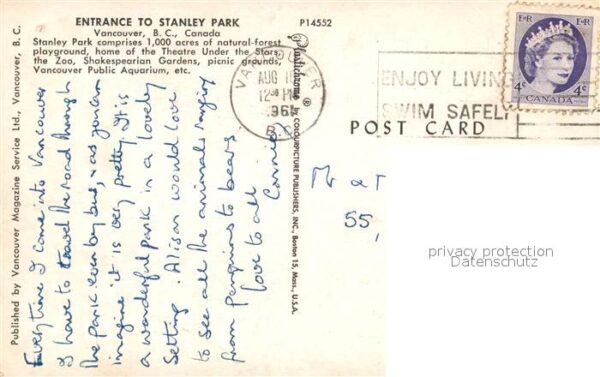 ENTRANCE TO STANLEY PARK
Vancouver, B. C., Canada
Stanley Park comprises 1,000 acres of natural-forest
playground, home of the Theatre Under the Stars,
the Zoo, Shakespearian Gardens, picnic grounds,
Vancouver Public Aquarium, etc.
P14552
Published by Vancouver Magazine Service Ltd., Vancouver, B. C.
Plastichrome ® by COLOURPICTURE PUBLISHERS, INC., Boston 15, Mass. U.S.A.
Everytime I come into Vancouver
I have to travel the road through
the Park even by bus, & as you can
imagine it is very pretty. It is
a wonderful park in a lovely
Setting. Alison would love
to see all the animals ranging
from penguins to bears
love to all
Connie
VANCOUVER
AUG 10
12 30 PM
196
B.C.
ENJOY LIVING
SWIM SAFELY
E II R E II R
4c 4c
CANADA
POST CARD
Mr
55,
privacy protection
Datenschutz